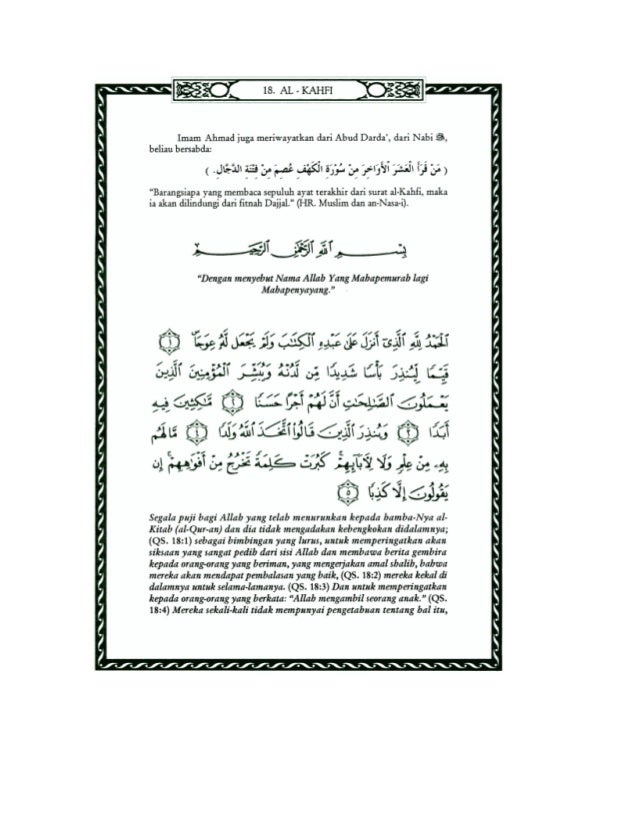 18. AL - KAHFI
Imam Ahmad juga meriwayatkan dari Abud Darda', dari Nabi ﷺ,
beliau bersabda:
( مَنْ قَرَأَ الْعَشَرَ الْأَوَاخِرَ مِنْ سُوْرَةِ الْكَهْفِ عُصِمَ مِنْ فِتْنَةِ الدَّجَّالِ. )
"Barangsiapa yang membaca sepuluh ayat terakhir dari surat al-Kahfi, maka
ia akan dilindungi dari fitnah Dajjal." (HR. Muslim dan an-Nasa-i).
بِسْمِ ٱللَّهِ ٱلرَّحْمَٰنِ ٱلرَّحِيمِ
"Dengan menyebut Nama Allah Yang Mahapemurah lagi
Mahapenyayang."
ٱلْحَمْدُ لِلَّهِ ٱلَّذِىٓ أَنزَلَ عَلَىٰ عَبْدِهِ ٱلْكِتَٰبَ وَلَمْ يَجْعَل لَّهُۥ عِوَجَا ۜ ١
قَيِّمًا لِّيُنذِرَ بَأْسًا شَدِيدًا مِّن لَّدُنْهُ وَيُبَشِّرَ ٱلْمُؤْمِنِينَ ٱلَّذِينَ
يَعْمَلُونَ ٱلصَّٰلِحَٰتِ أَنَّ لَهُمْ أَجْرًا حَسَنًا ٢ مَّٰكِثِينَ فِيهِ
أَبَدًا ٣ وَيُنذِرَ ٱلَّذِينَ قَالُوا۟ ٱتَّخَذَ ٱللَّهُ وَلَدًا ٤ مَّا لَهُم
بِهِۦ مِنْ عِلْمٍ وَلَا لِءَابَآئِهِمْ ۚ كَبُرَتْ كَلِمَةً تَخْرُجُ مِنْ أَفْوَٰهِهِمْ ۚ إِن
يَقُولُونَ إِلَّا كَذِبًا ٥
Segala puji bagi Allah yang telah menurunkan kepada hamba-Nya al-
Kitab (al-Qur-an) dan dia tidak mengadakan kebengkokan didalamnya;
(QS. 18:1) sebagai bimbingan yang lurus, untuk memperingatkan akan
siksaan yang sangat pedih dari sisi Allah dan membawa berita gembira
kepada orang-orang yang beriman, yang mengerjakan amal shalih, bahwa
mereka akan mendapat pembalasan yang baik, (QS. 18:2) mereka kekal di
dalamnya untuk selama-lamanya. (QS. 18:3) Dan untuk memperingatkan
kepada orang-orang yang berkata: "Allah mengambil seorang anak." (QS.
18:4) Mereka sekali-kali tidak mempunyai pengetahuan tentang hal itu,